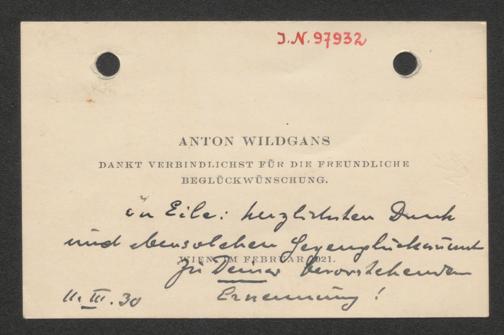 J.N. 97932
ANTON WILDGANS
DANKT VERBINDLICHST FÜR DIE FREUNDLICHE
BEGLÜCKWÜNSCHUNG.
in Eile: herzlichsten Dank
und ebensolchen Gegenglückwunsch
WIEN, IM FEBRUAR 1921.
zu Deiner bevorstehenden
11. III. 30 Ernennung!